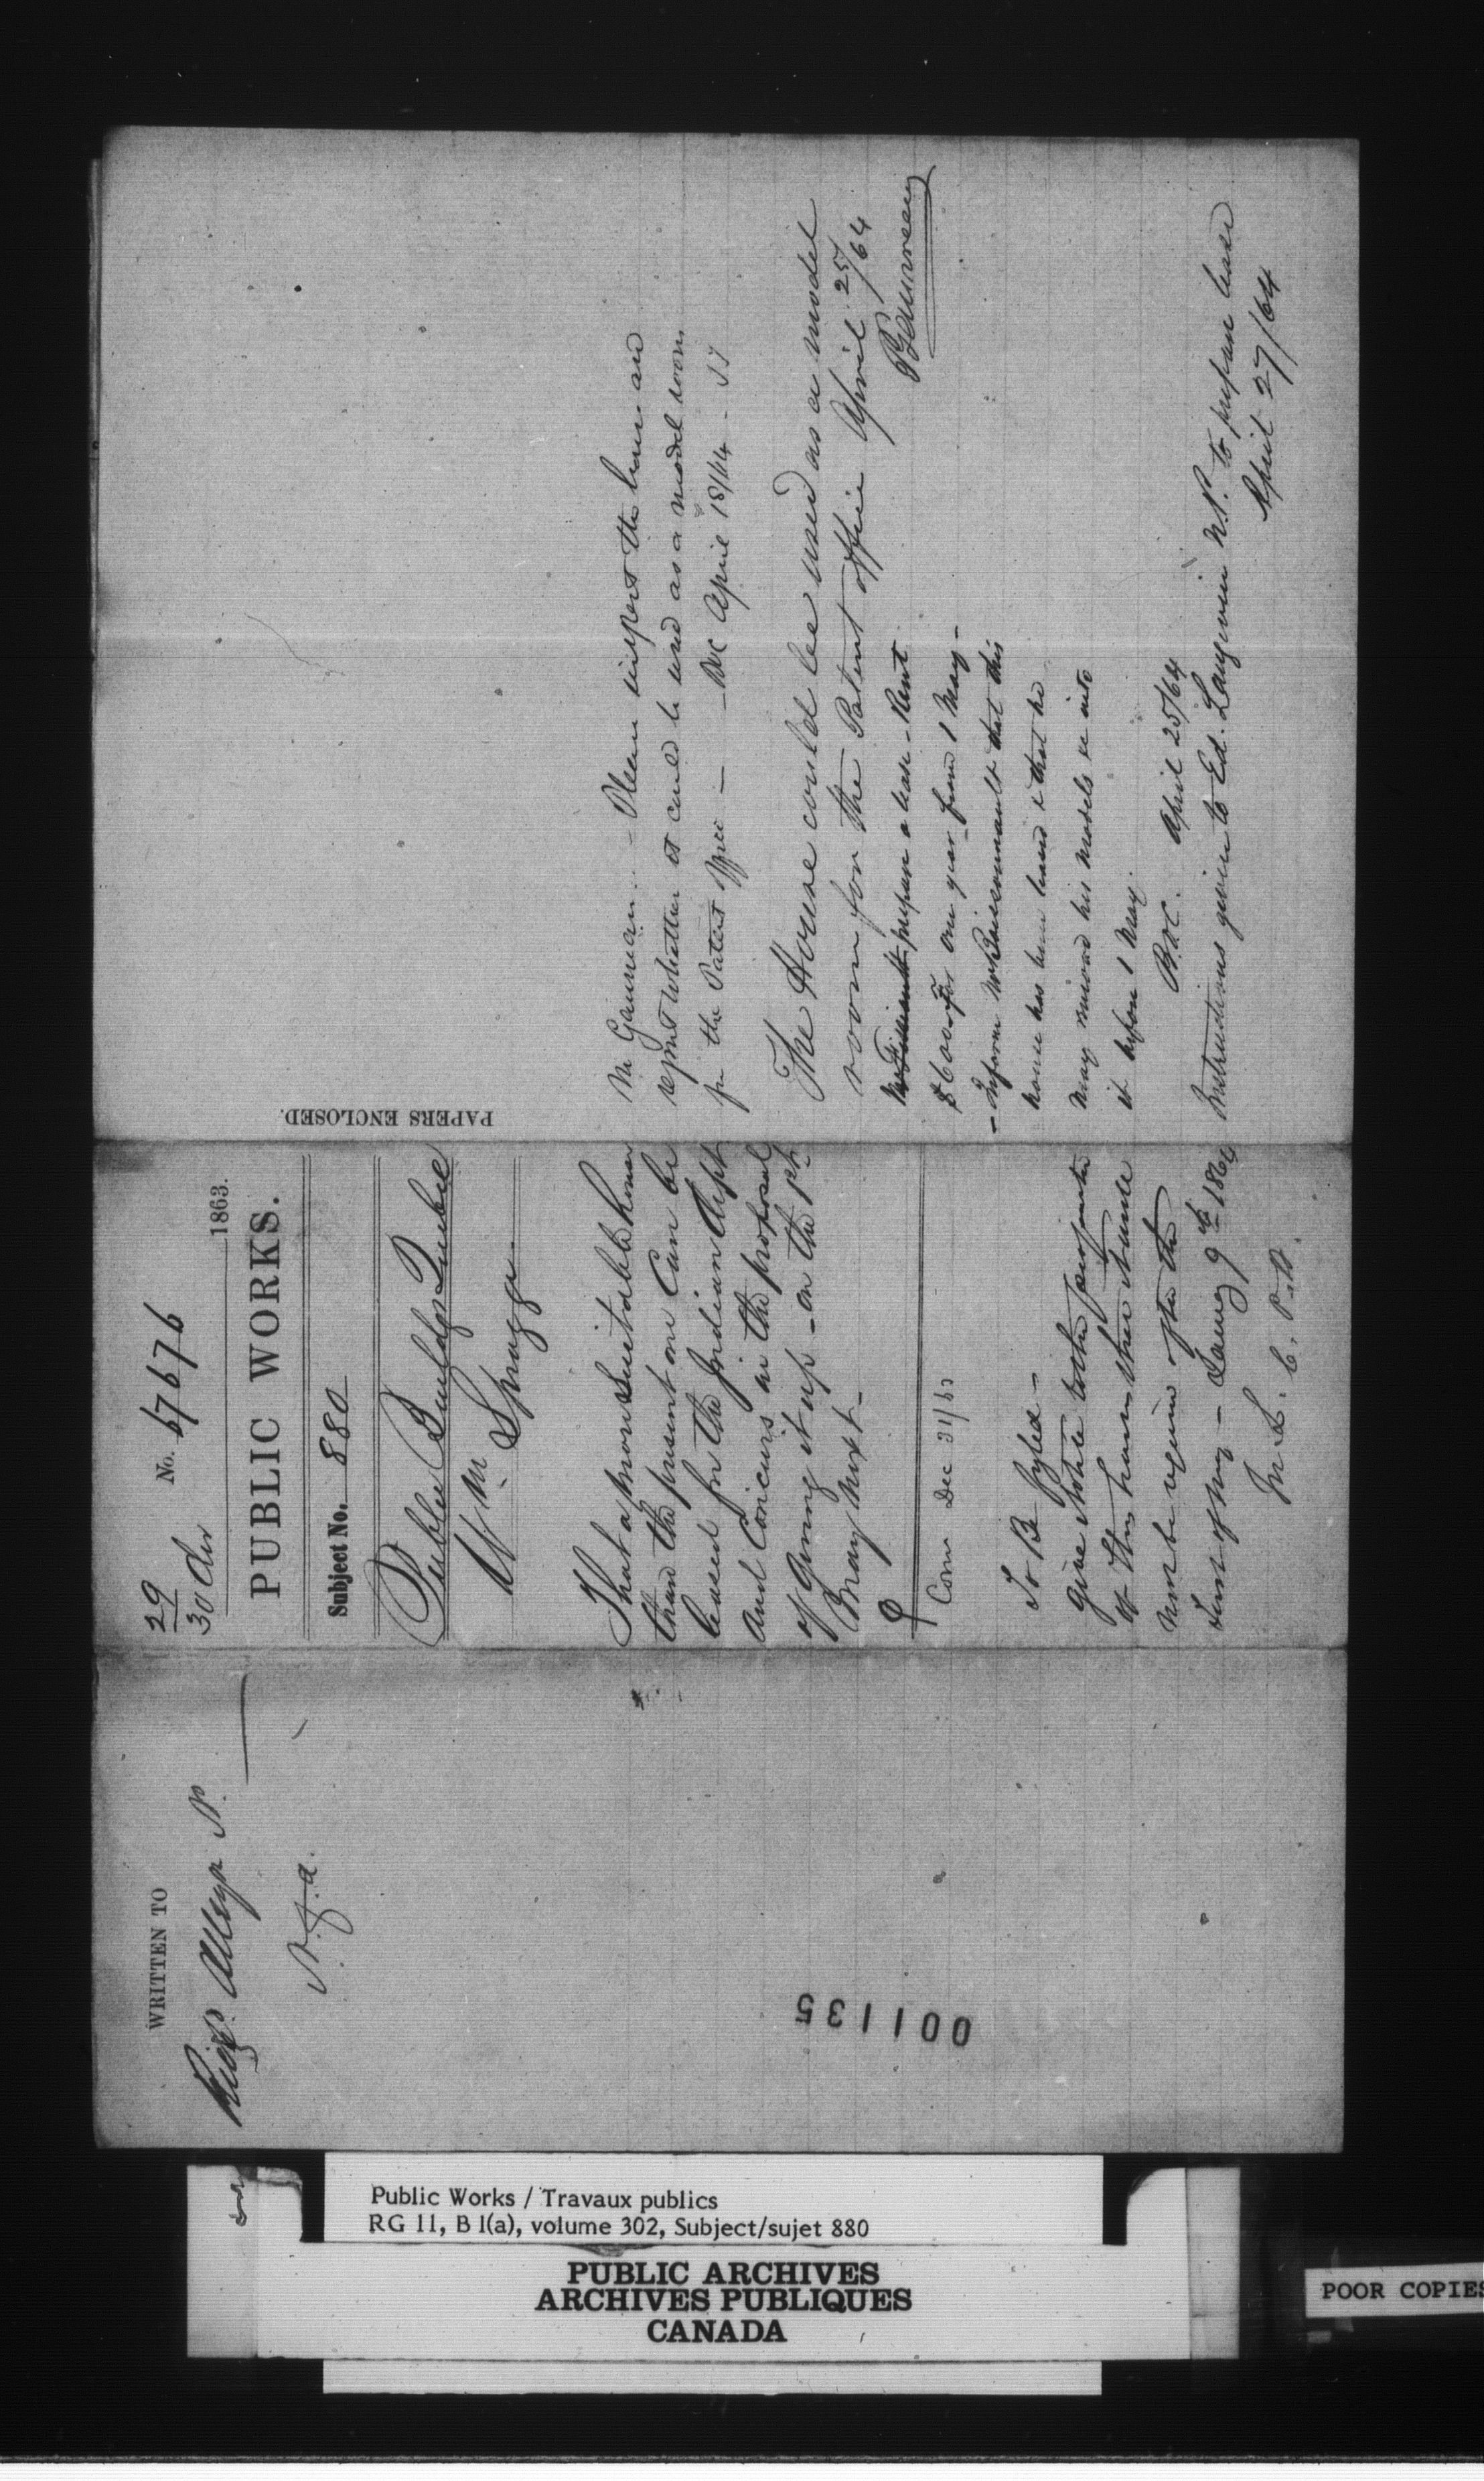 WRITTEN TO
Alleyn
N. f. a.
001135
29
30 Decr No. 67676 1863.
PUBLIC WORKS.
Subject No. 880
Public Buildgs Quebec
Wm Spragge
That a more suitable house
than the present one can be
leased for the Indian Dept
and concurs in the proposal
of giving it up on the 1st
May next
Com Dec 31/63
To Be Fyled
give notice to the proprietor
of this house that it will
not be required after the
first of May - Jany 9th 1864
PAPERS ENCLOSED.
Mr Gauvreau - Please inspect the house and
report whether it could be used as a model room
for the Patent Office - April 18/64 -
The House could be used as a model
room for the Patent office April 25/64
PGauvreau
prepare a lease - Rent
$600 for one year from 1 May -
- Inform that this
house has been leased & that he
may remove his models &c into
it before 1 May.
April 25/64
Instructions given to Ed. Langevin N.P. to prepare lease
April 27/64
Public Works / Travaux publics
RG 11, B 1(a), volume 302, Subject/sujet 880
PUBLIC ARCHIVES
ARCHIVES PUBLIQUES
CANADA
POOR COPIES